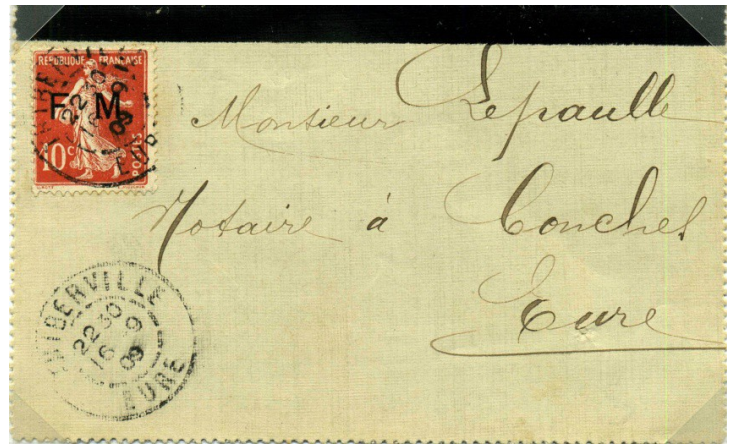 REPUBLIQUE FRANÇAISE
F. M.
10 c
POSTES
22 30
16 9
09
EUR
Monsieur Lepaulle
Notaire à Conches
Eure
THIBERVILLE
22 30
16 9
09
EURE